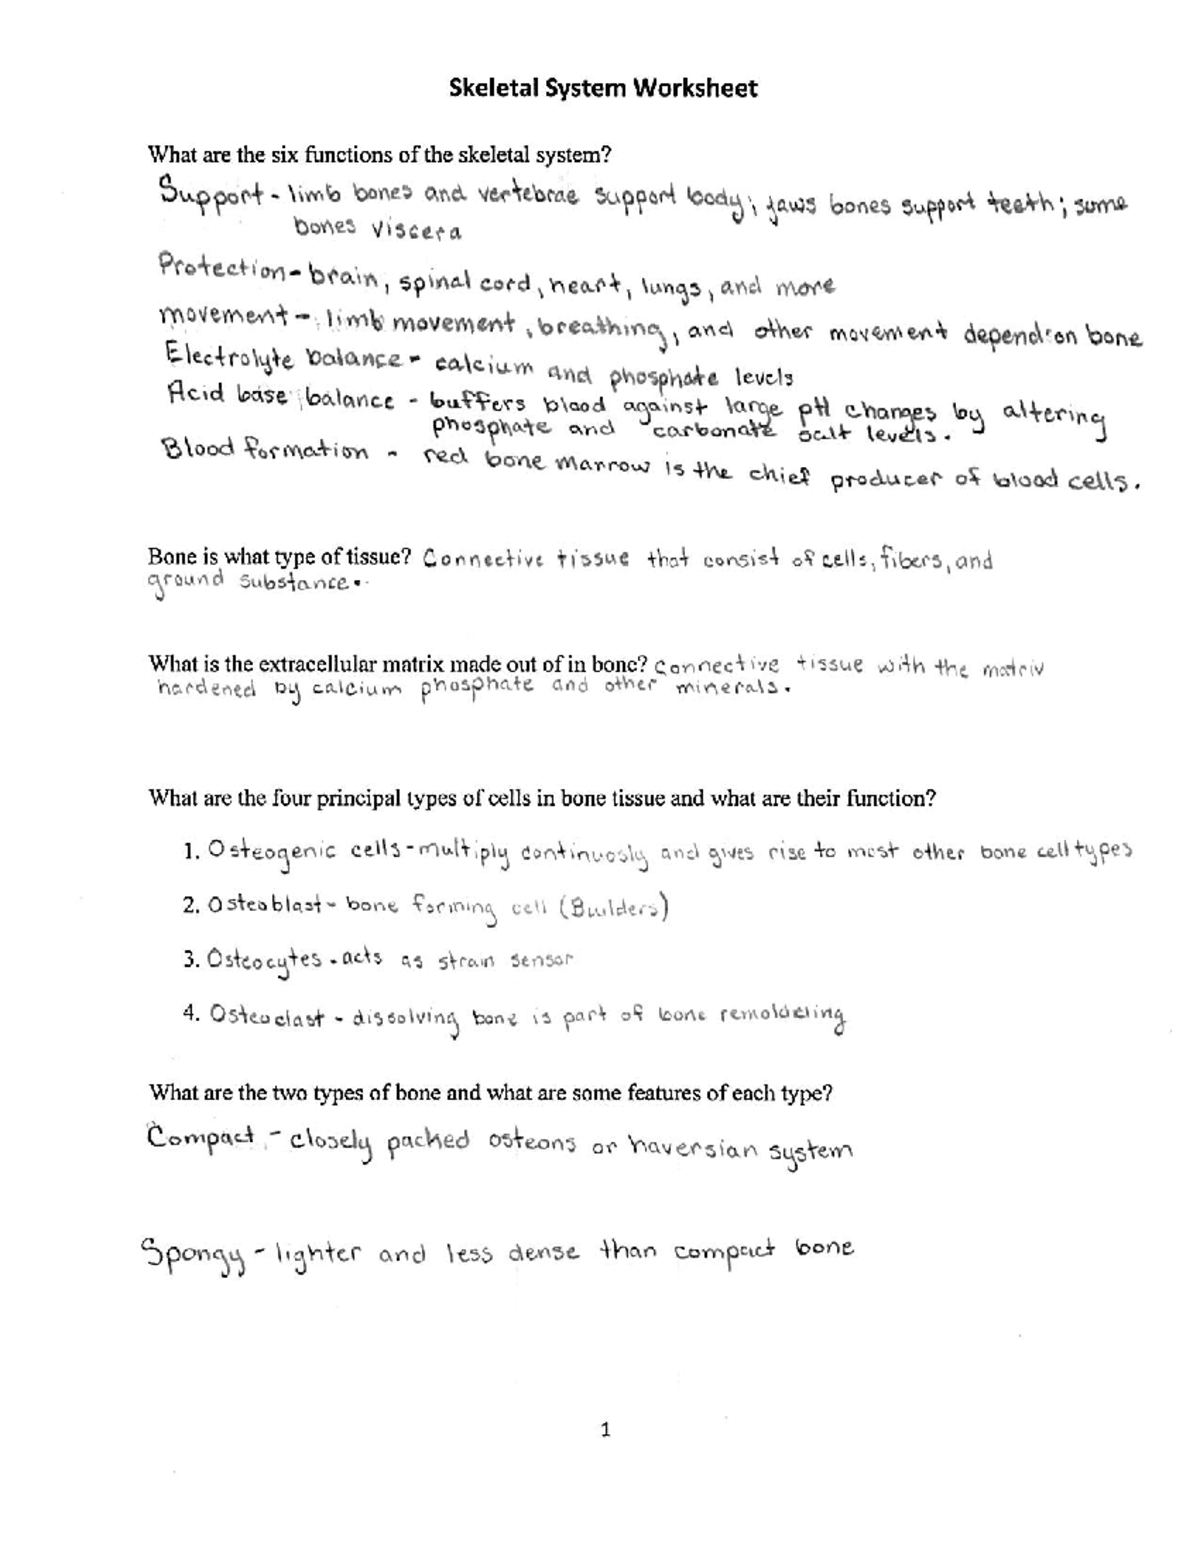 Skeletal System Worksheet
What are the six functions of the skeletal system?
Support - limb bones and vertebrae support body; jaws bones support teeth; some
bones viscera
Protection - brain, spinal cord, heart, lungs, and more
movement - limb movement, breathing, and other movement depend on bone
Electrolyte balance - calcium and phosphate levels
Acid base balance - buffers blood against large pH changes by altering
phosphate and carbonate salt levels.
Blood formation - red bone marrow is the chief producer of blood cells.
Bone is what type of tissue? Connective tissue that consist of cells, fibers, and
ground substance.
What is the extracellular matrix made out of in bone? Connective tissue with the matriv
hardened by calcium phosphate and other minerals.
What are the four principal types of cells in bone tissue and what are their function?
1. Osteogenic cells - multiply continuosly and gives rise to most other bone cell types
2. Osteoblast - bone forming cell (Builders)
3. Osteocytes - acts as strain sensor
4. Osteoclast - dissolving bone is part of bone remoldeling
What are the two types of bone and what are some features of each type?
Compact - closely packed osteons or haversian system
Spongy - lighter and less dense than compact bone
1